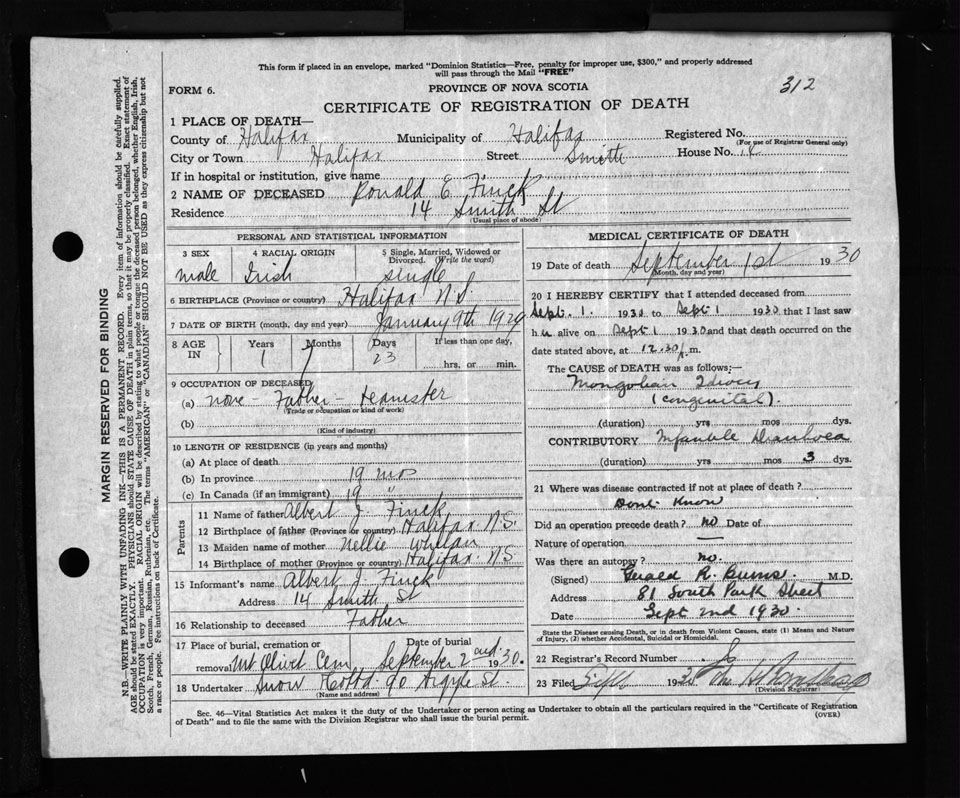 This form if placed in an envelope, marked "Dominion Statistics—Free, penalty for improper use, $300," and properly addressed
will pass through the Mail "FREE"
FORM 6.
PROVINCE OF NOVA SCOTIA
312
CERTIFICATE OF REGISTRATION OF DEATH
1 PLACE OF DEATH—
County of Halifax Municipality of Halifax Registered No.
(For use of Registrar General only)
City or Town Halifax Street Smith House No. 14
If in hospital or institution, give name
2 NAME OF DECEASED Ronald E Finck
Residence 14 Smith St
(Usual place of abode)
PERSONAL AND STATISTICAL INFORMATION
3 SEX 4 RACIAL ORIGIN 5 Single, Married, Widowed or Divorced. (Write the word)
male Irish single
6 BIRTHPLACE (Province or country) Halifax N.S.
7 DATE OF BIRTH (month, day and year) January 9th 1929
8 AGE IN Years Months Days If less than one day,
1 7 23 hrs, or min.
9 OCCUPATION OF DECEASED
(a) none - Father - Teamster
(Trade or occupation or kind of work)
(b)
(Kind of industry)
10 LENGTH OF RESIDENCE (in years and months)
(a) At place of death
(b) In province 19 mos
(c) In Canada (if an immigrant) 19
Parents
11 Name of father Albert J. Finck
12 Birthplace of father (Province or country) Halifax N.S.
13 Maiden name of mother Nellie Whelan
14 Birthplace of mother (Province or country) Halifax N.S
15 Informant's name Albert J. Finck
Address 14 Smith St
16 Relationship to deceased Father
17 Place of burial, cremation or removal Mt Olivet Cem. Date of burial September 2nd 1930.
18 Undertaker Snow & Co Ltd 90 Argyle St.
(Name and address)
MEDICAL CERTIFICATE OF DEATH
19 Date of death September 1st 1930
(Month, day and year)
20 I HEREBY CERTIFY that I attended deceased from
Sept. 1. 1930 to Sept 1 1930 that I last saw
him alive on Sept 1 1930 and that death occurred on
date stated above, at 12.30 m.
The CAUSE of DEATH was as follows;—
Mongolian Idiocy
(congenital).
(duration) yrs mos dys.
CONTRIBUTORY Infantile Diarrhoea
(duration) yrs mos 3 dys.
21 Where was disease contracted if not at place of death?
Dont Know
Did an operation precede death? no Date of
Nature of operation —
Was there an autopsy? no.
(Signed) Gerald R. Burns. M.D.
Address 81 South Park Street
Date Sept 2nd 1930.
State the Disease causing Death, or in death from Violent Causes, state (1) Means and Nature
of Injury, (2) whether Accidental, Suicidal or Homicidal.
22 Registrar's Record Number
23 Filed Sept 193
(Division Registrar)
Sec. 46—Vital Statistics Act makes it the duty of the Undertaker or person acting as Undertaker to obtain all the particulars required in the "Certificate of Registration
of Death" and to file the same with the Division Registrar who shall issue the burial permit.
(OVER)
MARGIN RESERVED FOR BINDING
N.B.—WRITE PLAINLY WITH UNFADING INK—THIS IS A PERMANENT RECORD. Every item of information should be carefully supplied.
AGE should be stated EXACTLY. PHYSICIANS should STATE CAUSE OF DEATH in plain terms, so that it may be properly classified. Exact statement of
OCCUPATION is very important. RACIAL ORIGIN will be described by stating to what people or tongue the deceased person belonged, whether English, Irish,
Scotch, French, German, Russian, Ruthenian, etc. The terms "AMERICAN" or "CANADIAN" SHOULD NOT BE USED as they express citizenship but not
a race or people. Fee instructions on back of Certificate.